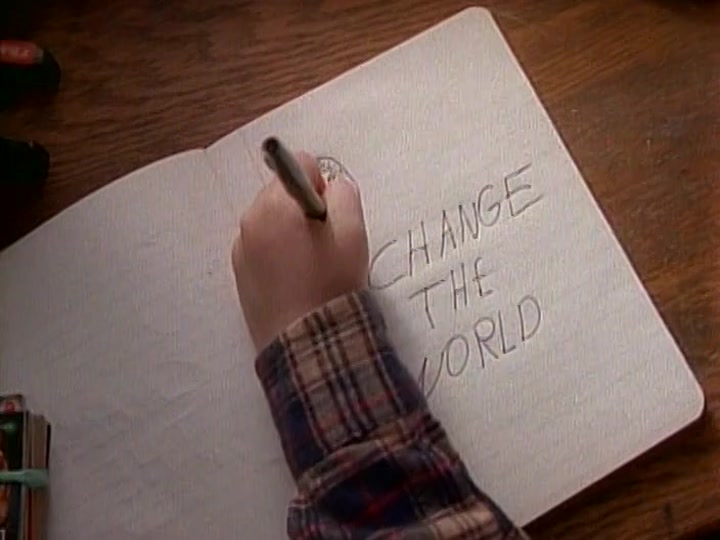 CHANGE
THE
WORLD